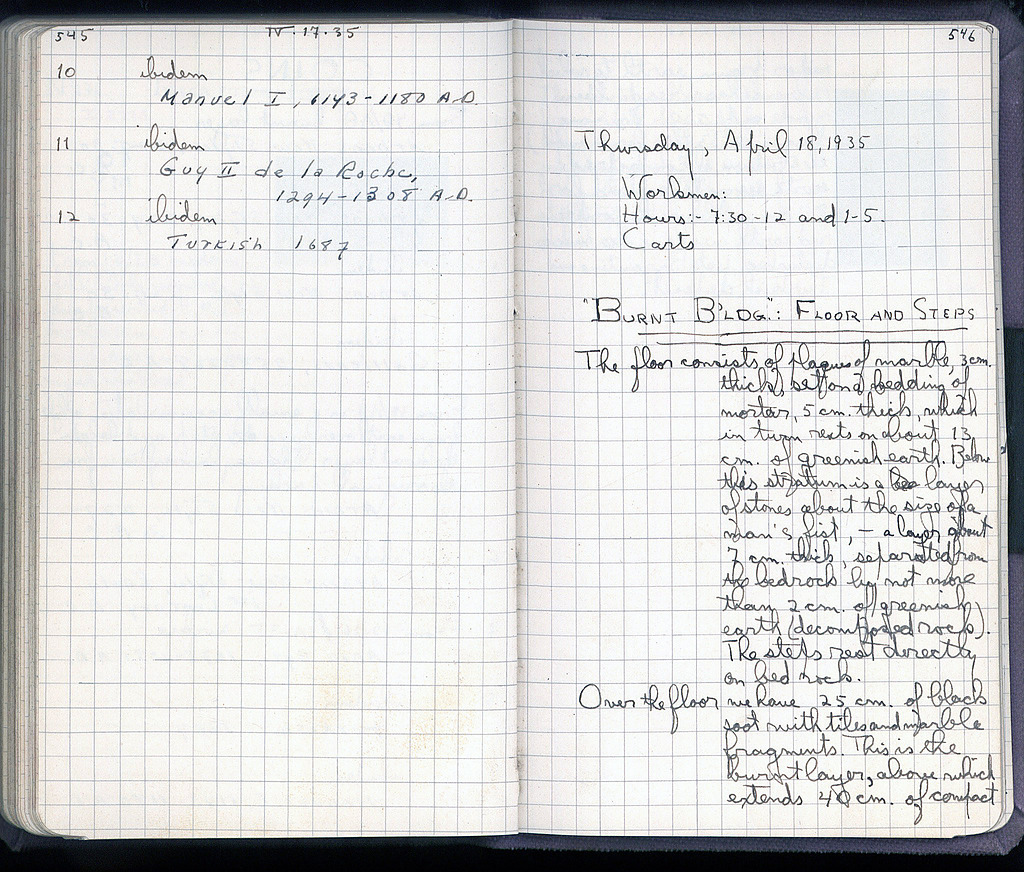 545
IV.17.35
10 ibidem
Manuel I, 1143-1180 A.D.
11 ibidem
Guy II de la Roche,
1294-1308 A.D.
12 ibidem
Turkish 1687
546
Thursday, April 18, 1935
Workmen:
Hours:- 7:30-12 and 1-5.
Carts
"BURNT B'LDG.": FLOOR AND STEPS
The floor consists of plaques of marble, 3 cm.
thick, set on a bedding of
mortar, 5 cm. thick, which
in turn rests on about 13
cm. of greenish earth. Below
this stratum is a layer
of stones about the size of a
man's fist, – a layer about
7 cm. thick, separated from
the bedrock by not more
than 2 cm. of greenish
earth (decomposed rock).
The steps rest directly
on bed rock.
Over the floor we have 25 cm. of black
soot with tiles and marble
fragments. This is the
burnt layer, above which
extends 40 cm. of compact